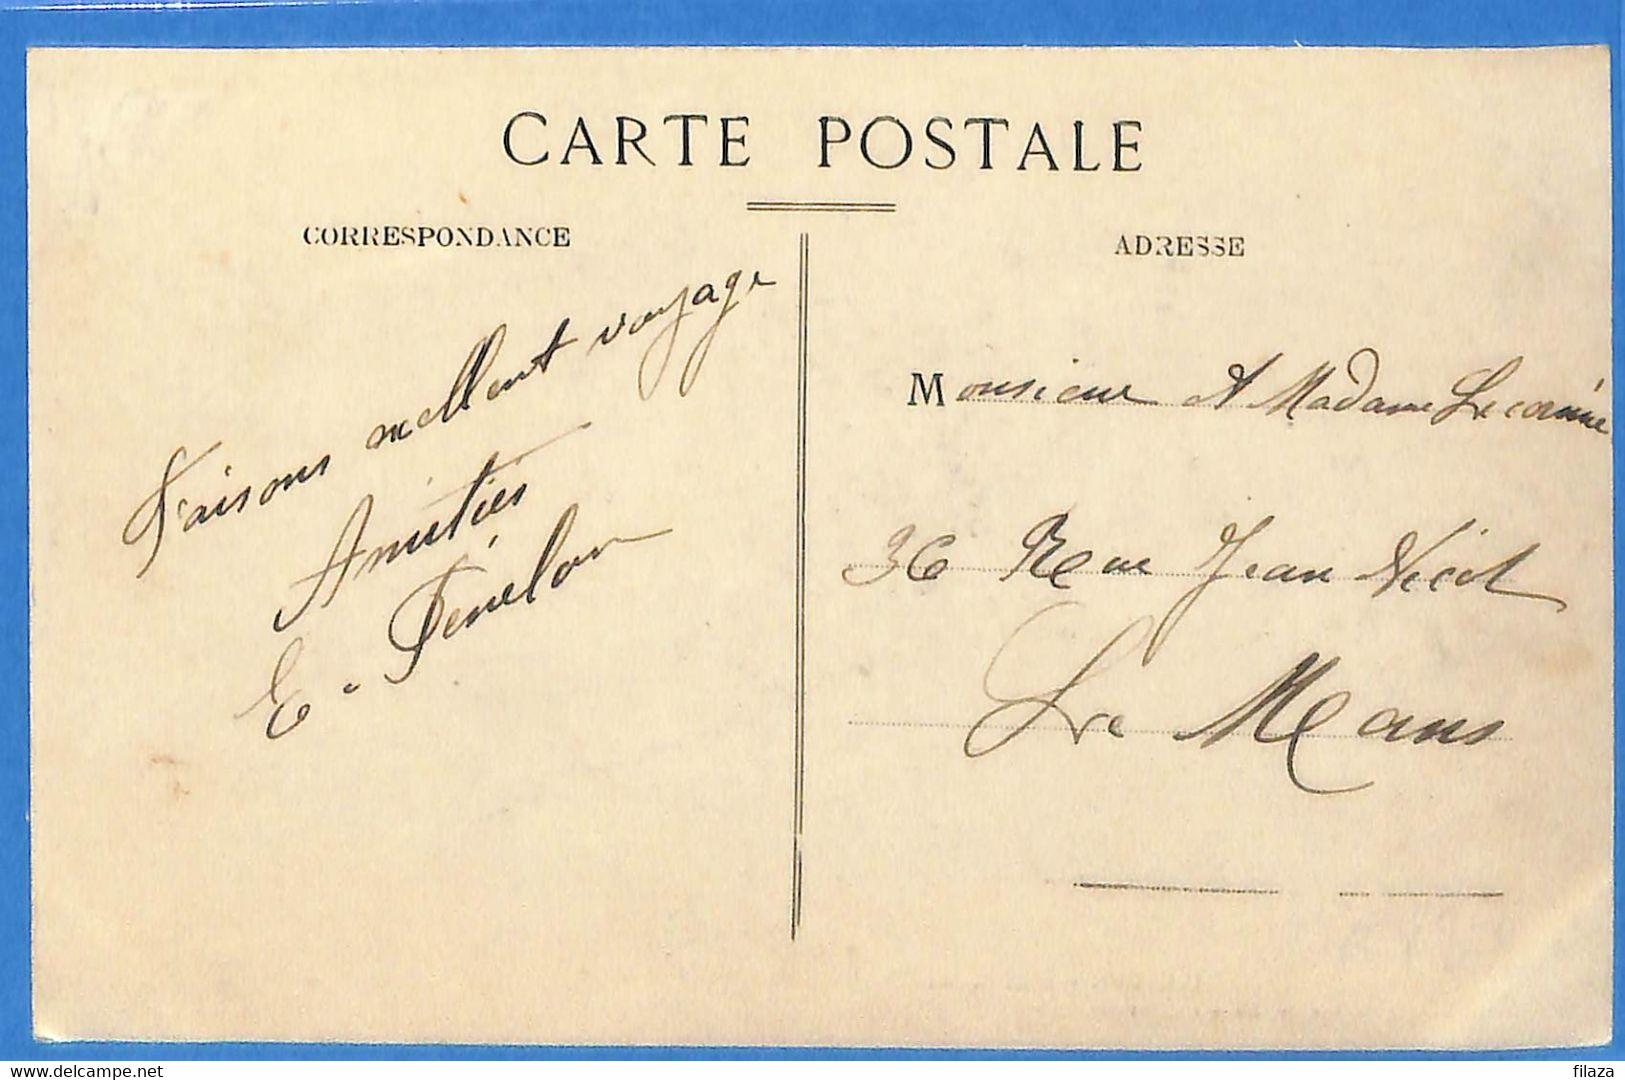 CARTE POSTALE
CORRESPONDANCE
ADRESSE
Faisons excellent voyage
Amitiés
E. Fénelon
Monsieur et Madame
36 Rue Jean Nicot
Le Mans
delcampe.net
filaza